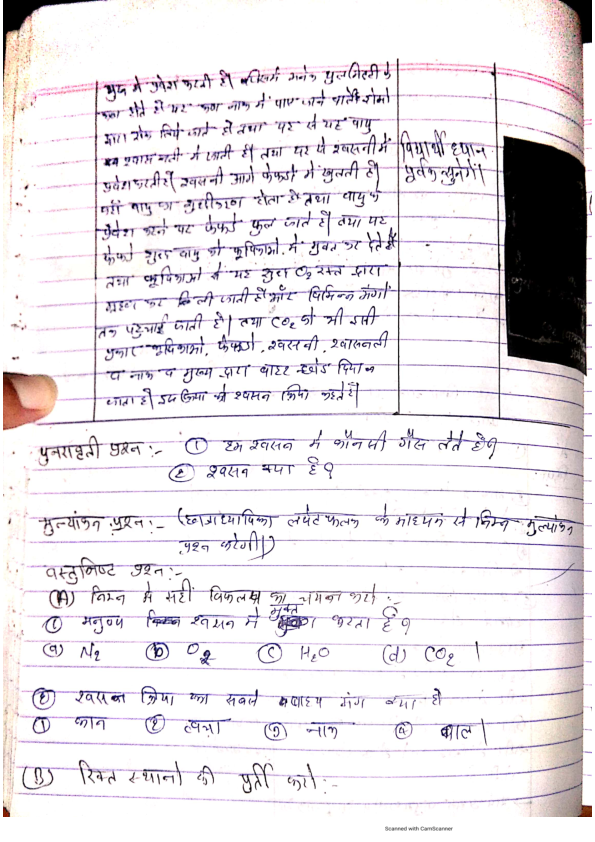 मुख में प्रवेश करती है। जिसमें अनेक धूल मिट्टी के
कण होते है यह कण नाक में पाए जाने वाले रोमो
द्वारा रोक लिये जाते है तथा यह से यह वायु
श्वास नली में जाती है। तथा यह से श्वसनी में
प्रवेश करती है। श्वसनी आगे फेफड़ो में खुलती है।
वहाँ वायु का शुद्धीकरण होता है तथा वायु के
प्रवेश करने पर फेफड़े फूल जाते है। तथा यह
फेफड़े शुद्ध वायु को कूपिकाओ में मुक्त कर देते हैं
तथा कूपिकाओ से यह शुद्ध रक्त द्वारा
ग्रहण कर ली जाती है और विभिन्न अंगों
तक पहुचाई जाती है। तथा CO₂ को भी इसी
प्रकार कूपिकाओ, फेफड़ो, श्वसनी, श्वासनली
व नाक व मुख द्वारा बाहर छोड दिया
जाता है। इस क्रिया को श्वसन क्रिया कहते है।
विद्यार्थी ध्यान
पूर्वक सुनेगें।
पुनरावृती प्रश्न :- ① हम श्वसन में कौनसी गैस लेते है?
② श्वसन क्या है?
मुल्यांकन प्रश्न :- (छात्राध्यापिका लपेटफलक के माध्यम से निम्न मुल्यांकन
प्रश्न करेगी।)
वस्तुनिष्ट प्रश्न :-
(A) निम्न में सही विकल्प का चयन करो :-
① मनुष्य श्वसन में मुक्त करता है?
(a) N₂ (b) O₂ (c) H₂O (d) CO₂ |
② श्वसन क्रिया का सबसे बाह्य अंग क्या है
① कान ② त्वचा ③ नाक ④ बाल |
(B) रिक्त स्थानो की पुर्ती करो :-
Scanned with CamScanner